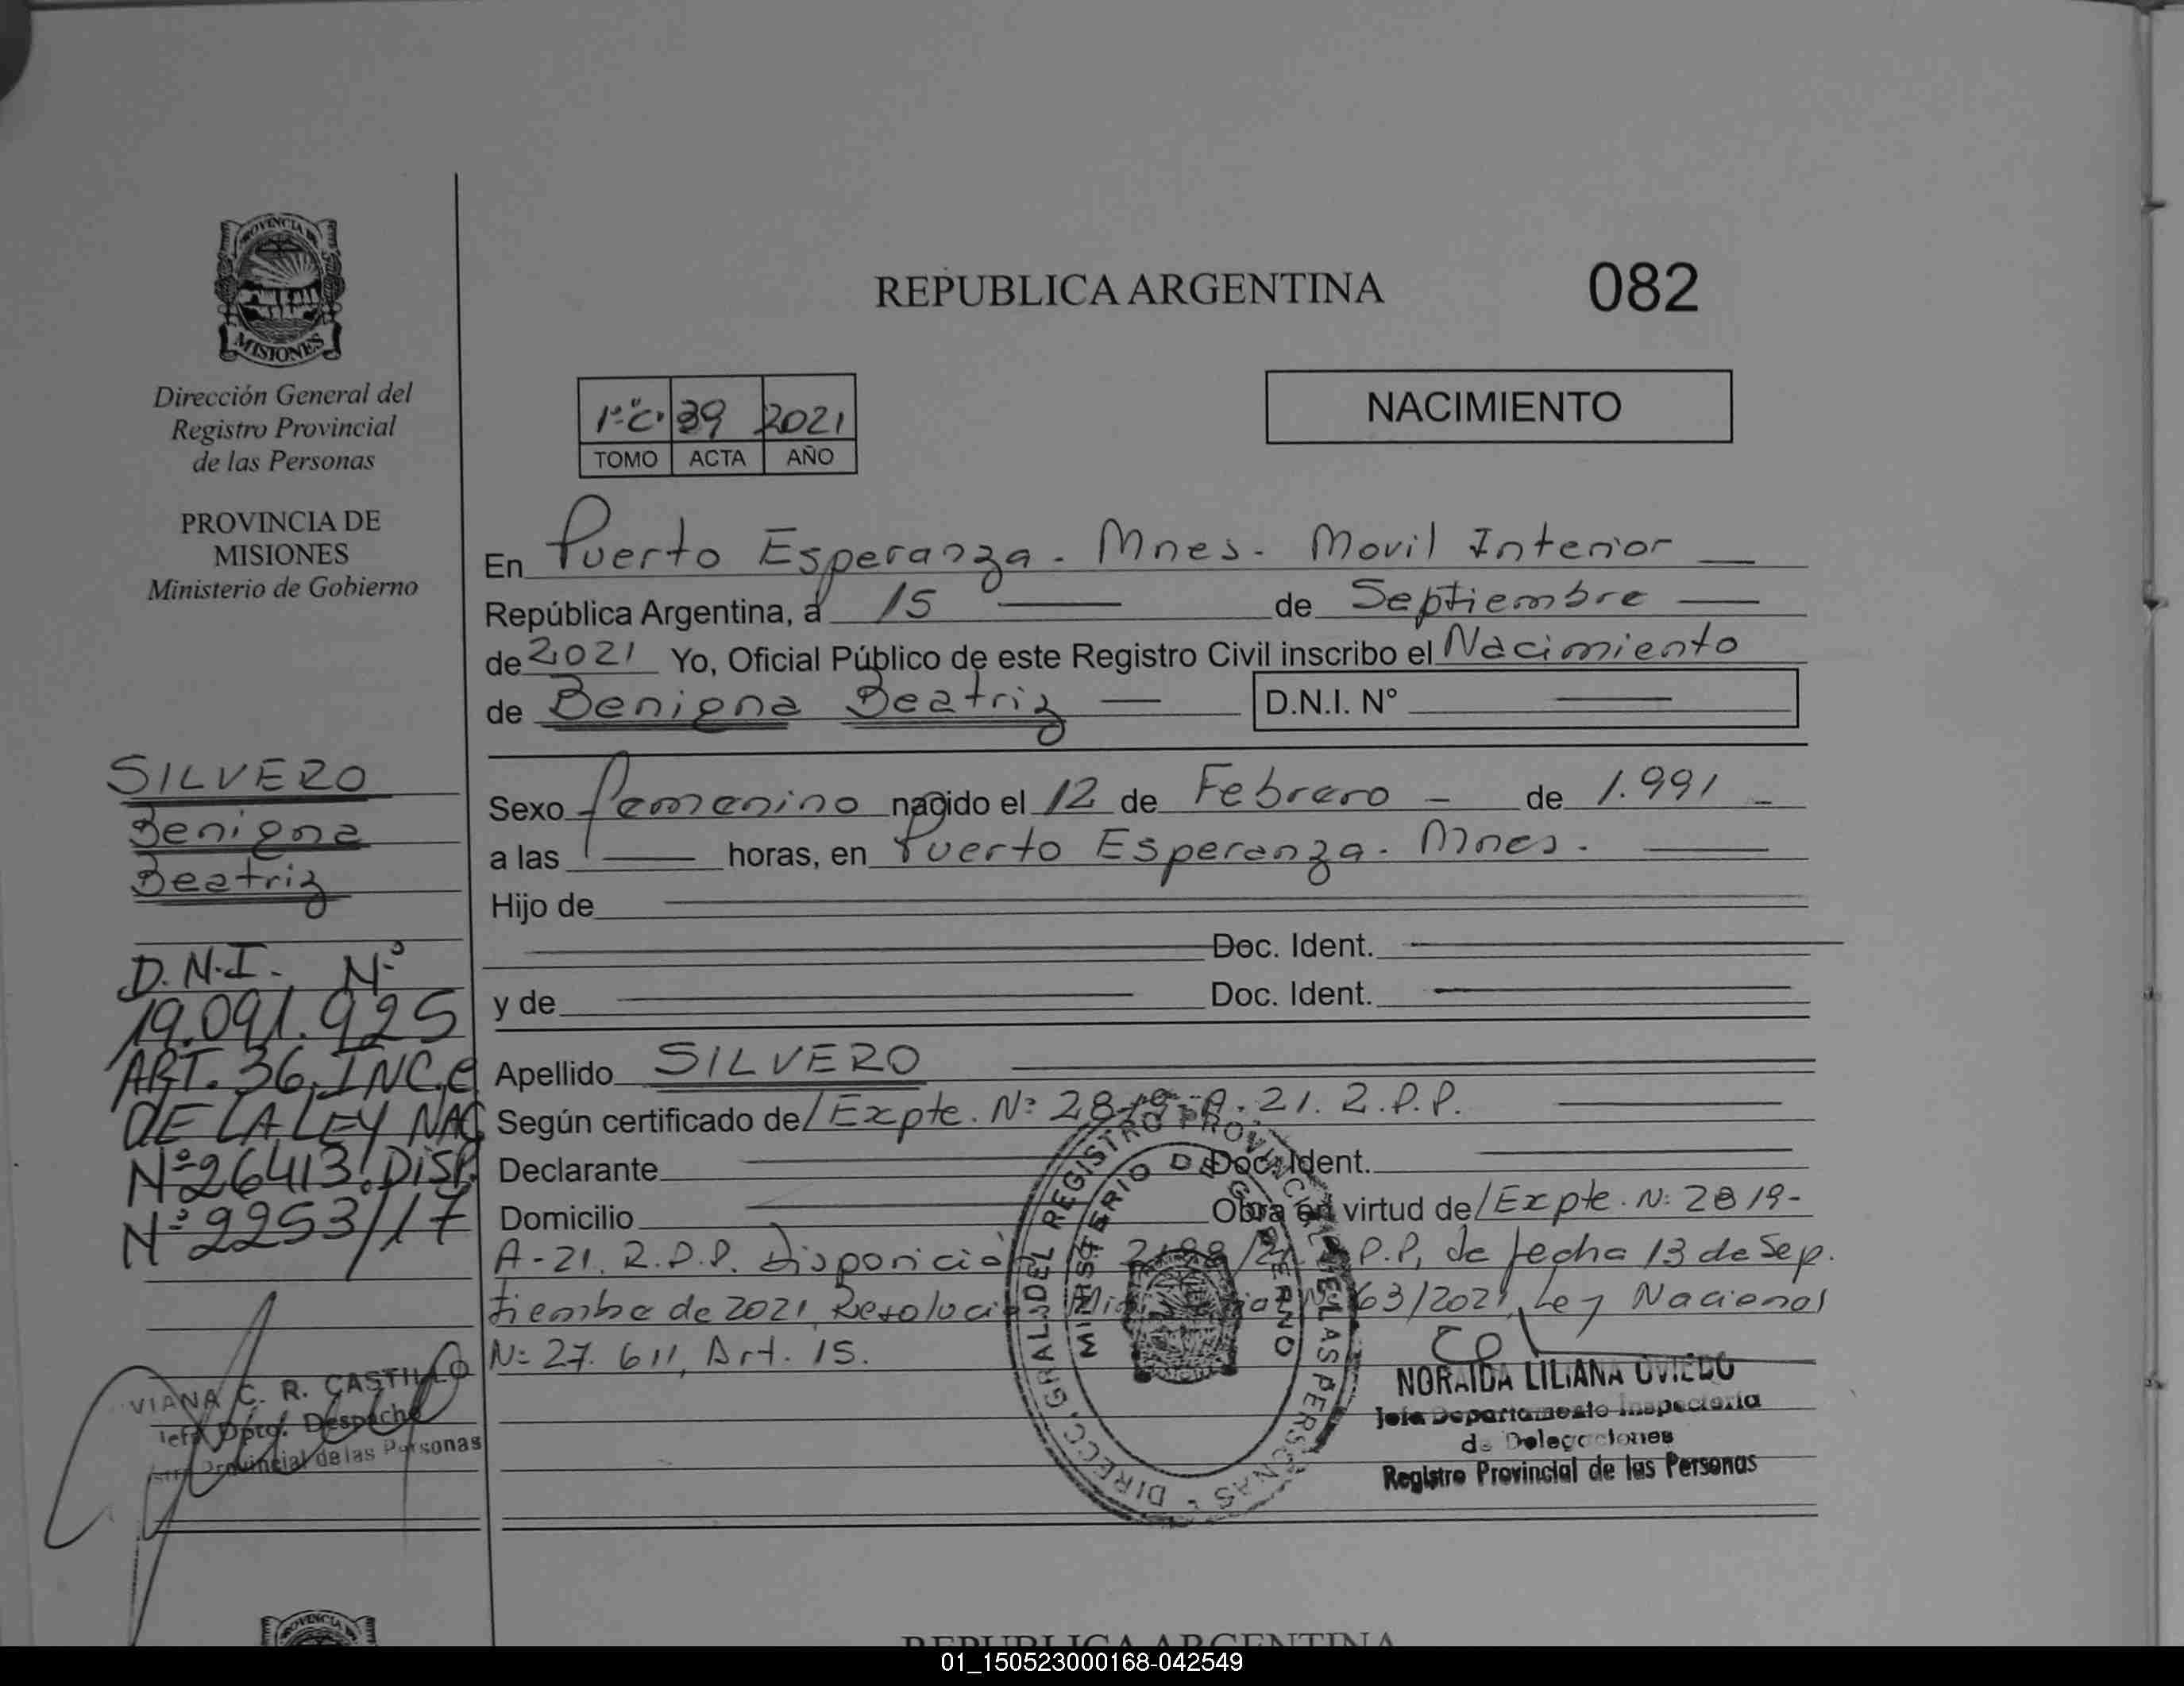 PROVINCIA DE
MISIONES
Dirección General del
Registro Provincial
de las Personas
PROVINCIA DE
MISIONES
Ministerio de Gobierno
SILVERO
Benigna
Beatriz
D.N.I. Nº
19.091.925
ART. 36, INC. C
DE LA LEY NAC
Nº 26413. DISP.
Nº 2253/17
VIANA C. R. CASTILLO
Jefa Dpto. Despacho
Provincial de las Personas
REPUBLICA ARGENTINA
082
NACIMIENTO
1º C. 39 2021
TOMO ACTA AÑO
En Puerto Esperanza - Mnes - Movil Interior
República Argentina, a 15 de Septiembre
de 2,021 Yo, Oficial Público de este Registro Civil inscribo el Nacimiento
de Benigna Beatriz D.N.I. Nº
Sexo femenino nacido el 12 de Febrero - de 1.991 -
a las horas, en Puerto Esperanza - Mnes.
Hijo de
Doc. Ident.
y de Doc. Ident.
Apellido SILVERO
Según certificado de/ Expte. Nº 2819-A-21. R.P.P.
Declarante Doc. Ident.
Domicilio Obra en virtud de/ Expte. Nº 2819-
A-21. R.P.P. Disposición /21 P.P, de fecha 13 de Sep.
tiembre de 2021, Resolución 63/2021, Ley Nacional
Nº 27.611, Art. 15.
DIRECC. GRAL. DEL REGISTRO PROVINCIAL DE LAS PERSONAS
MINISTERIO DE GOBIERNO
NORAIDA LILIANA OVIEDO
Jefa Departamento Inspectoria
de Delegaciones
Registro Provincial de las Personas
PROVINCIA
REPUBLICA ARGENTINA
01_150523000168-042549